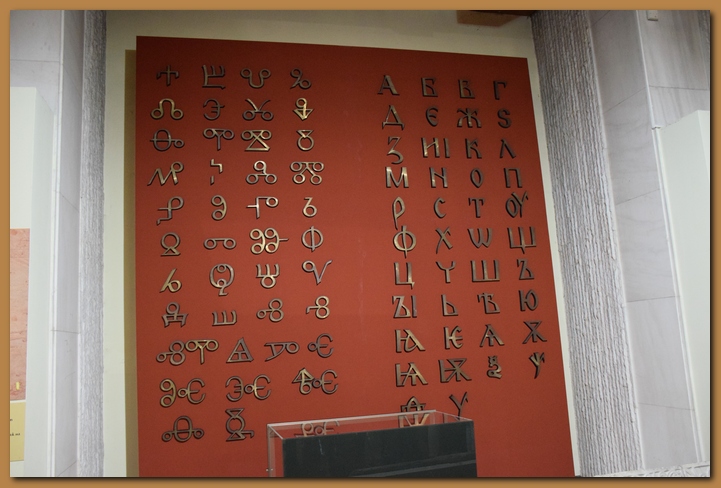 Ⰰ Ⰱ Ⰲ Ⰳ
Ⰴ Ⰵ Ⰶ Ⰷ
Ⰸ Ⰺ Ⰹ Ⰻ
Ⰼ Ⰽ Ⰾ Ⰿ
Ⱀ Ⱁ Ⱂ Ⱃ
Ⱄ Ⱅ Ⱆ Ⱇ
Ⱈ Ⱉ Ⱋ Ⱌ
Ⱍ Ⱎ Ⱏ Ⱐ
ⰟⰊ Ⱑ Ⱓ Ⱔ
Ⱗ Ⱘ Ⱙ
Ⱚ Ⱛ
А Б В Г
Д Є Ж Ѕ
З ИІ К Л
М Н О П
Р С Т Ѹ
Ф Х Ѡ Щ
Ц Ч Ш Ъ
ЪІ Ь Ѣ Ю
Ꙗ Ѥ Ѧ Ѫ
Ѩ Ѭ Ѯ Ѱ
Ѵ